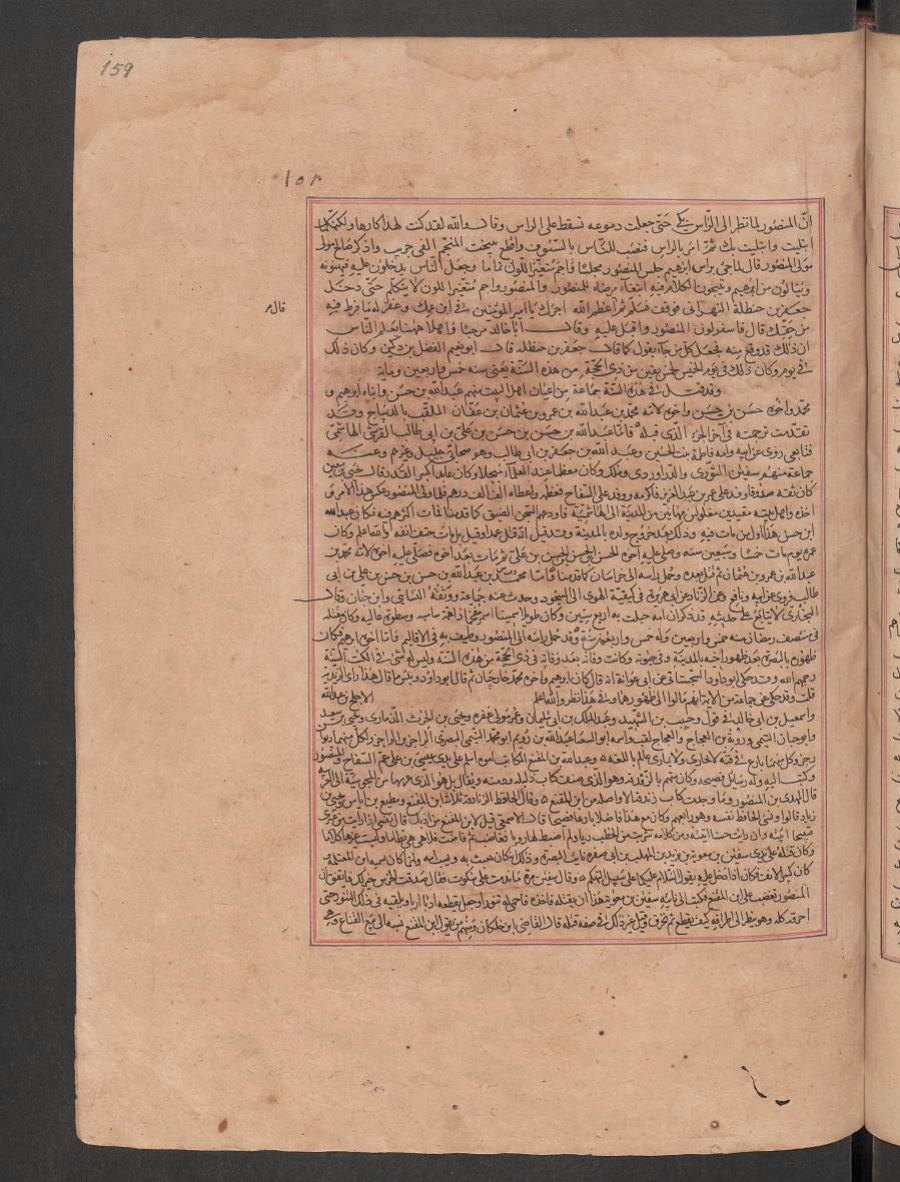 159
١٥٨
انّ المنصور لما نظر الى الرّاس بكى حَتى جعلت دموعه تسقط على الراس وقال والله لقد كنت لهذا كارها ولكنك
ابتليت وابتليت بك ثمّ امر بالراس فنصب للنّاس بالسّوق واقطع نيبخت المنجّم الفى جريب وذكر صالح مولى
مولى المنصور قال لما جئ براس ابرهيم جلس المنصور مجلسًا عامّا وجعل النّاس يدخلون عليه فيهنونه
وينالون من ابرهيم ويقبحون الكلام فيه ابتغاء مرضاة المنصور والمنصور واجم متغيّر اللون لا يتكلّم حَتّى دخل
جعفر بن حنظلة النهرانى فوقف فسلّم ثم اعظم الله اجرك يا امير المؤمنين فى ابن عمك وغفر له ما فرط فيه
قال م
من حقّك قال فاصفر لون المنصور واقبل عليه وقال ابا خالد مرحبًا واهلا ههنا فعلم النّاس
ان ذلك قد وقع منه فجعل كل من جاء يقول كما قال جعفر بن حنظله قال ابو نعيم الفضل بن دكين وكان ذلك
فى يوم وكان ذلك فى يوم الخميس لخمس بقين من ذى الحجّة من هذه السّنة يعنى سنه خمس واربعين وماية
وقد قتل فى هذه السّنة جماعة من اعيان اهل البيت منهم عبد الله بن حسن وابناه ابرهيم و
محمّد واخوه حسن بن حسن واخوه لامّه محمّد بن عبد الله بن عمرو بن عثمان بن عفّان الملقب بالديباج وقد
تقدّمت ترجمته فى آخر الجزء الذى قبله فامّا عبد الله بن حسن بن حسن بن علىّ بن ابى طالب القرشى الهاشمى
فتابعى روى عن ابيه وامه فاطمة بنت الحسين وعبد الله بن جعفر بن ابى طالب وهو صحابىّ جليل وغيرهم وعنه
جماعة منهم سفين الثورى والدراوردى ومالك وكان معظما عند العلماء مبجلا وكان عابدا كبير القدر قال يحيى بن معين
كان ثقه صدوقا وفد على عمر بن عبد العزيز فاكرمه ووفد على السّفاح فعظمه واعطاه الف الف درهم فلما ولى المنصور عكس هذا الامر
اخذه واهل بيته مقيدين مغلولين مهانين من المدينة الى الهاشميّة فاودعهم السّجن الضيق كما قدمنا فمات اكثرهم فيه فكان عبد الله
ابن حسن هذا اول من مات فيه وذلك بعد خروج ولده بالمدينة وقد قيل انه قتل عمدا وقيل بل مات حتف انفه والله اعلم وكان
عمره يوم مات خمسا وسبعين سنه وصلى عليه اخوه الحسن بن الحسن بن الحسن بن علىّ ثم مات بعد اخوه فصلّى عليه اخوه لامّه محمد بن
عبد الله بن عمرو بن عثمان ثم قتل بعده وحمل راسه الى خراسان كما قدمنا فامّا محمد بن عبد الله بن حسن بن حسن بن على بن ابى
طالب فروى عن ابيه ونافع وعن ابى الزناد عن ابى هريرة فى كيفية الهوى الى السجود وحدث عنه جماعة ووثقه النسائى وابن حبان وقال
البخارى لا يتابع على حديثه وقد ذكر ان امه حملت به اربع سنين وكان طويلا سمينا اسمر ضخمًا ذا همة ساميه وسطوة عاليه وكان مقتله
فى منتصف رمضان سنه خمس واربعين وله خمس واربعون سنة وقد حمل راسه الى المنصور وطيف به فى الاقاليم فاما اخوه ابرهيم فكان
ظهوره بالبصرة بعد ظهور اخيه بالمدينة وفى حيوته وكانت وفاته بعد وفاته فى ذى الحجّة من هذه السّنة وليس له شئ فى الكتب الستة
رحمهم الله وقد حكى ابو داود السجستانى عن ابى عوانة انه قال كان ابرهيم واخوه محمد خارجيّان ثم قال ابو داود وبئس ما قال هذا راى الزيدية
قلت وقد حكى عن جماعة من الائمة انهم مالوا الى ظهورهما وفى هذا نظر والله اعلم الاجلح بن عبد الله
واسمعيل بن ابى خالد فى قول وحبيب بن الشهيد وعبد الملك بن ابى سليمان وعمر مولى غفره ويحيى بن الحرث الذمارى ويحيى بن سعيد
وابو حيان التيمى وروبة بن العجاج والعجاج لقب واسمه ابو الشعثا عبد الله بن رؤبة ابو محمد التميمى البصرى الراجز بن الراجز ولكل منهما ديوان
رجز وكل منهما بارع فى فنّه لا يجارى ولا يمارى عالم باللغة وعبد الله بن المقفع الكاتب المفوه اسلم على يدى عيسى بن على عمّ السّفاح والمنصور
وكتب له وله رسايل فصيحه وكان متهما بالزندقة وهو الذى صنف كتاب كليله ودمنه ويقال بل هو الذى عربها من المجوسيّة الى العربية
قال المهدى بن المنصور وما وجدت كتاب زندقة الا واصله من ابن المقفع وقال الجاحظ الزنادقة ثلاثة ابن المقفع ومطيع بن اياس ويحيى بن
زياد قالوا ونسى الجاحظ نفسه وهو رابعهم وكان مع هذا فاضلا بارعا فصيحا قال الاصمعى قيل لابن المقفع من ادّبك قال نفسى اذا رايت من غيرى
قبيحا ابيته وان رايت حسنا اتيته ومن كلامه شربت من الخطب ريا ولم اضبط لها رويا فغاضت ثم فاضت فلا هى هى نظاما وليست غيرها كلاما
وكان قتله على يدى سفين بن معوية بن يزيد بن المهلب بن ابى صفره نايب البصرة وذلك انه كان يعبث به ويسب امه وانما كان يسميه ابن المغتلمه
كان كبير الانف فكان اذا دخل عليه يقول السّلام عليكما على سبيل التهكم وقال سفين مرة ما ندمت على سكوت فقال صدقت الخرس خير لك فاتفق ان
المنصور تغضب على ابن المقفع فكتب الى نايبه سفين بن معوية هذا ان يقتله فاخذه فاحمى له تنورا وجعل يقطعه اربا اربا ويلقيه فى ذلك التنور حتى
احرقه كله وهو ينظر الى اطرافه كيف تقطع ثم تحرق وقيل غير ذلك فى صفه قتله قال القاضى ابن خلكان ومنهم من يقول ابن المقفع نسبه الى بيع القفاع وهى